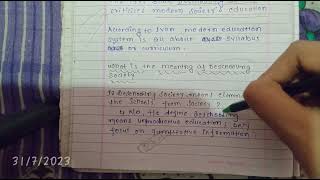 criticizes modern society's education
According to Ivan modern education
system is all about syllabus
or curriculum.
What is the meaning of Deschooling
Society
Deschooling Society means eliminate
the schools from society ?
No, He define deschooling
means unproductive education only
focus on quantitative information.
31/7/2023